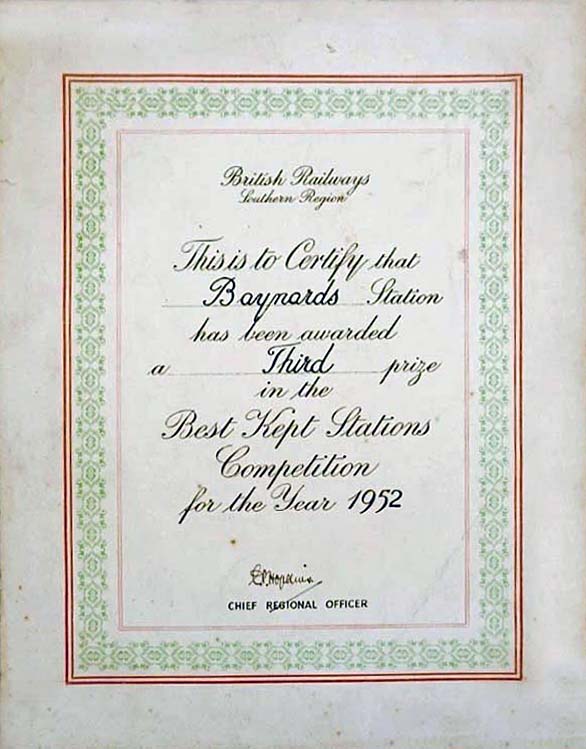 British Railways
Southern Region
This is to Certify that
Baynards Station
has been awarded
a Third prize
in the
Best Kept Stations
Competition
for the Year 1952
C.P. Hopkins
CHIEF REGIONAL OFFICER